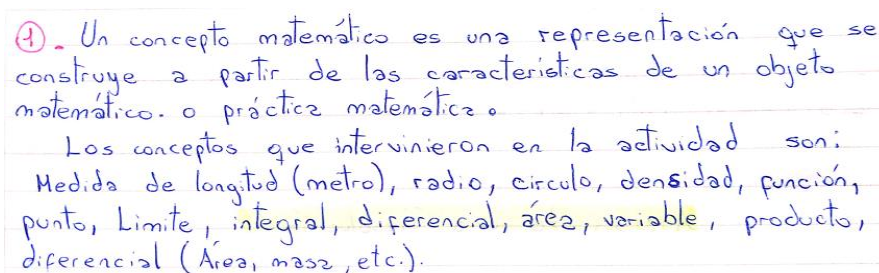 1. Un concepto matemático es una representación que se
construye a partir de las características de un objeto
matemático. o práctica matemática.
Los conceptos que intervinieron en la actividad son:
Medida de longitud (metro), radio, circulo, densidad, función,
punto, Limite, integral, diferencial, área, variable, producto,
diferencial (Área, masa, etc.).